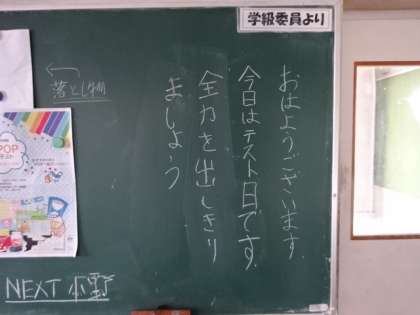 学級委員より
おはようございます。
今日はテスト日です。
全力を出しきり
ましょう
落とし物
POP
NEXT 小野